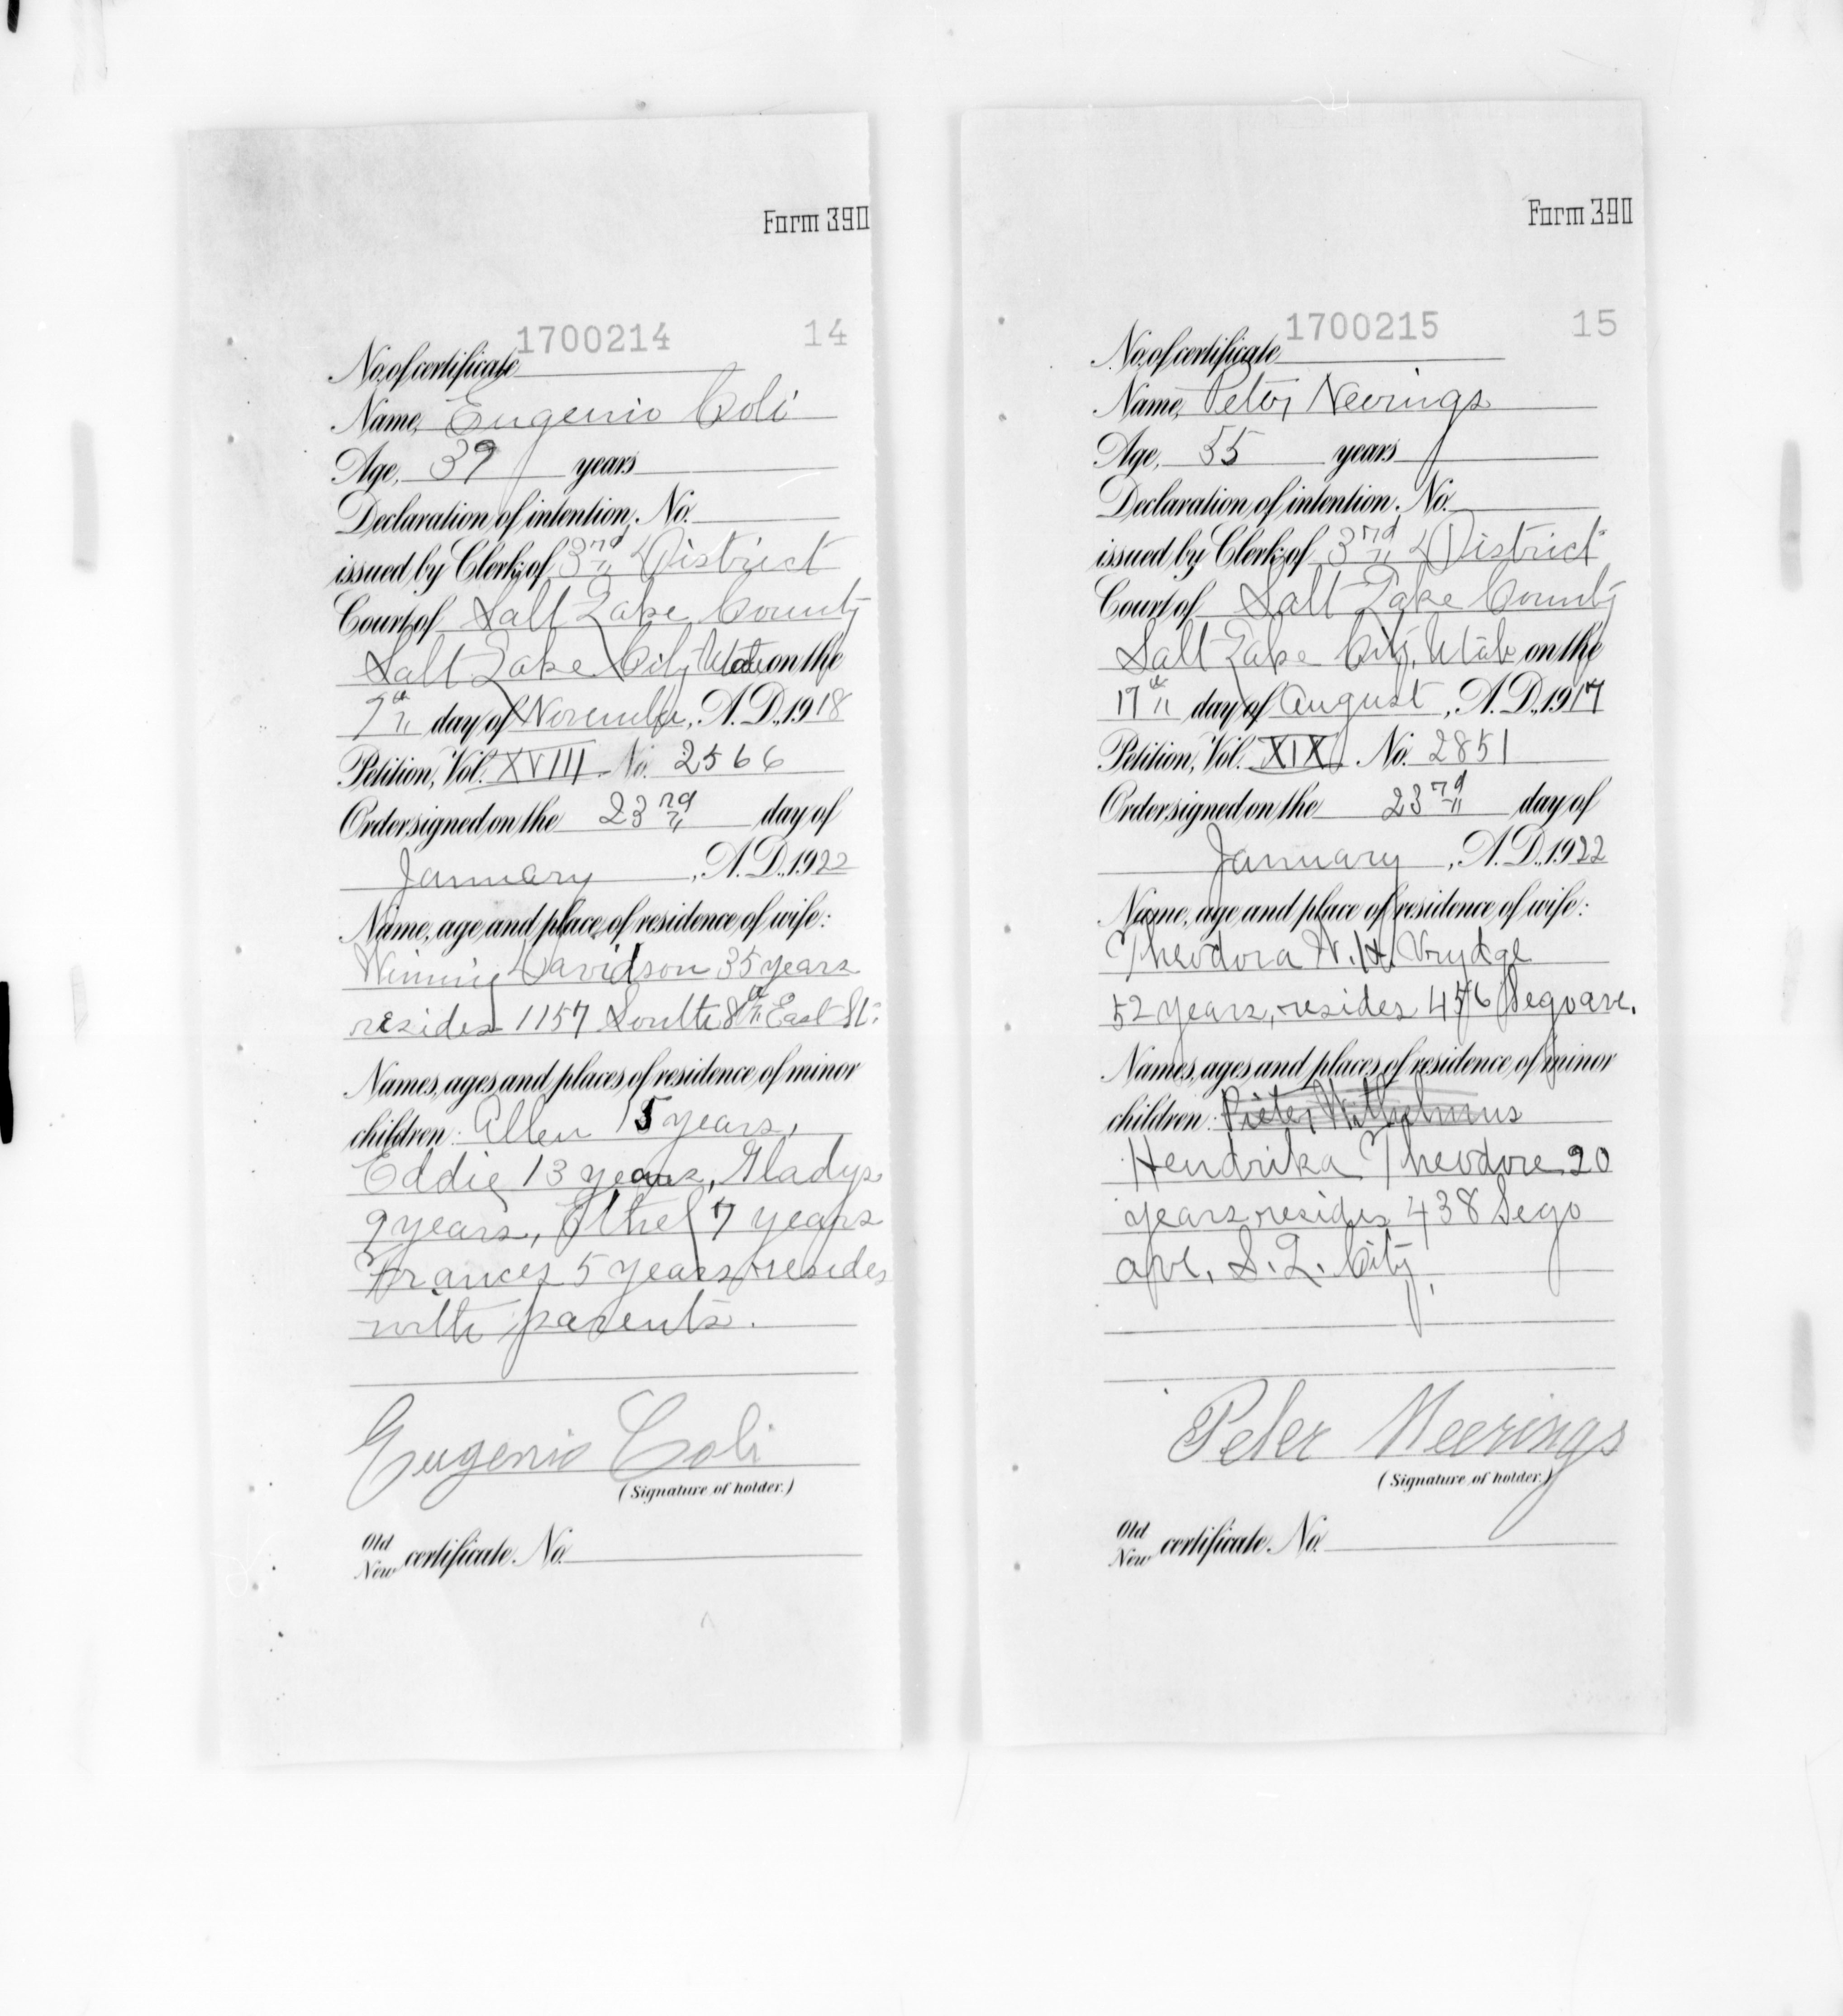 Form 390
1700214 14
No. of certificate
Name, Eugenio Coli
Age, 39 years
Declaration of intention, No.
issued by Clerk of 3rd District
Court of Salt Lake County
Salt Lake City Utah on the
7th day of November, A.D., 1918
Petition, Vol. XVIII No. 2566
Order signed on the 23rd day of
January, A.D., 1922
Name, age, and place of residence of wife:
Winnie Davidson 35 years
resides 1157 South 8th East St.
Names, ages and places of residence of minor
children: Allen 15 years,
Eddie 13 years, Gladys
9 years, Ethel 7 years
Frances 5 years resides
with parents.
Eugenio Coli
(Signature of holder.)
Old
New certificate No.
Form 390
1700215 15
No. of certificate
Name, Peter Neerings
Age, 55 years
Declaration of intention, No.
issued by Clerk of 3rd District
Court of Salt Lake County
Salt Lake City, Utah on the
17th day of August, A.D., 1917
Petition, Vol. XIX No. 2851
Order signed on the 23rd day of
January, A.D., 1922
Name, age, and place of residence of wife:
Theodora W. H. Vrydge
52 years, resides 456 Sego ave.
Names, ages and places of residence of minor
children: Pieter Wilhelmus
Hendrika Theodore 20
years resides 438 Sego
ave. S. L. City,
Peter Neerings
(Signature of holder.)
Old
New certificate No.